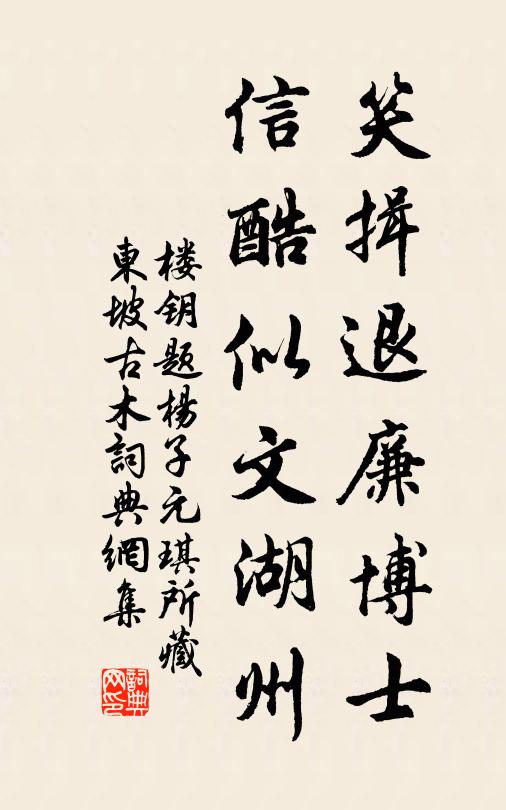 笑揖退廉博士
信酷似文湖州
楼钥题楊子元琪所藏
東坡古木詞典網集
詞典网印